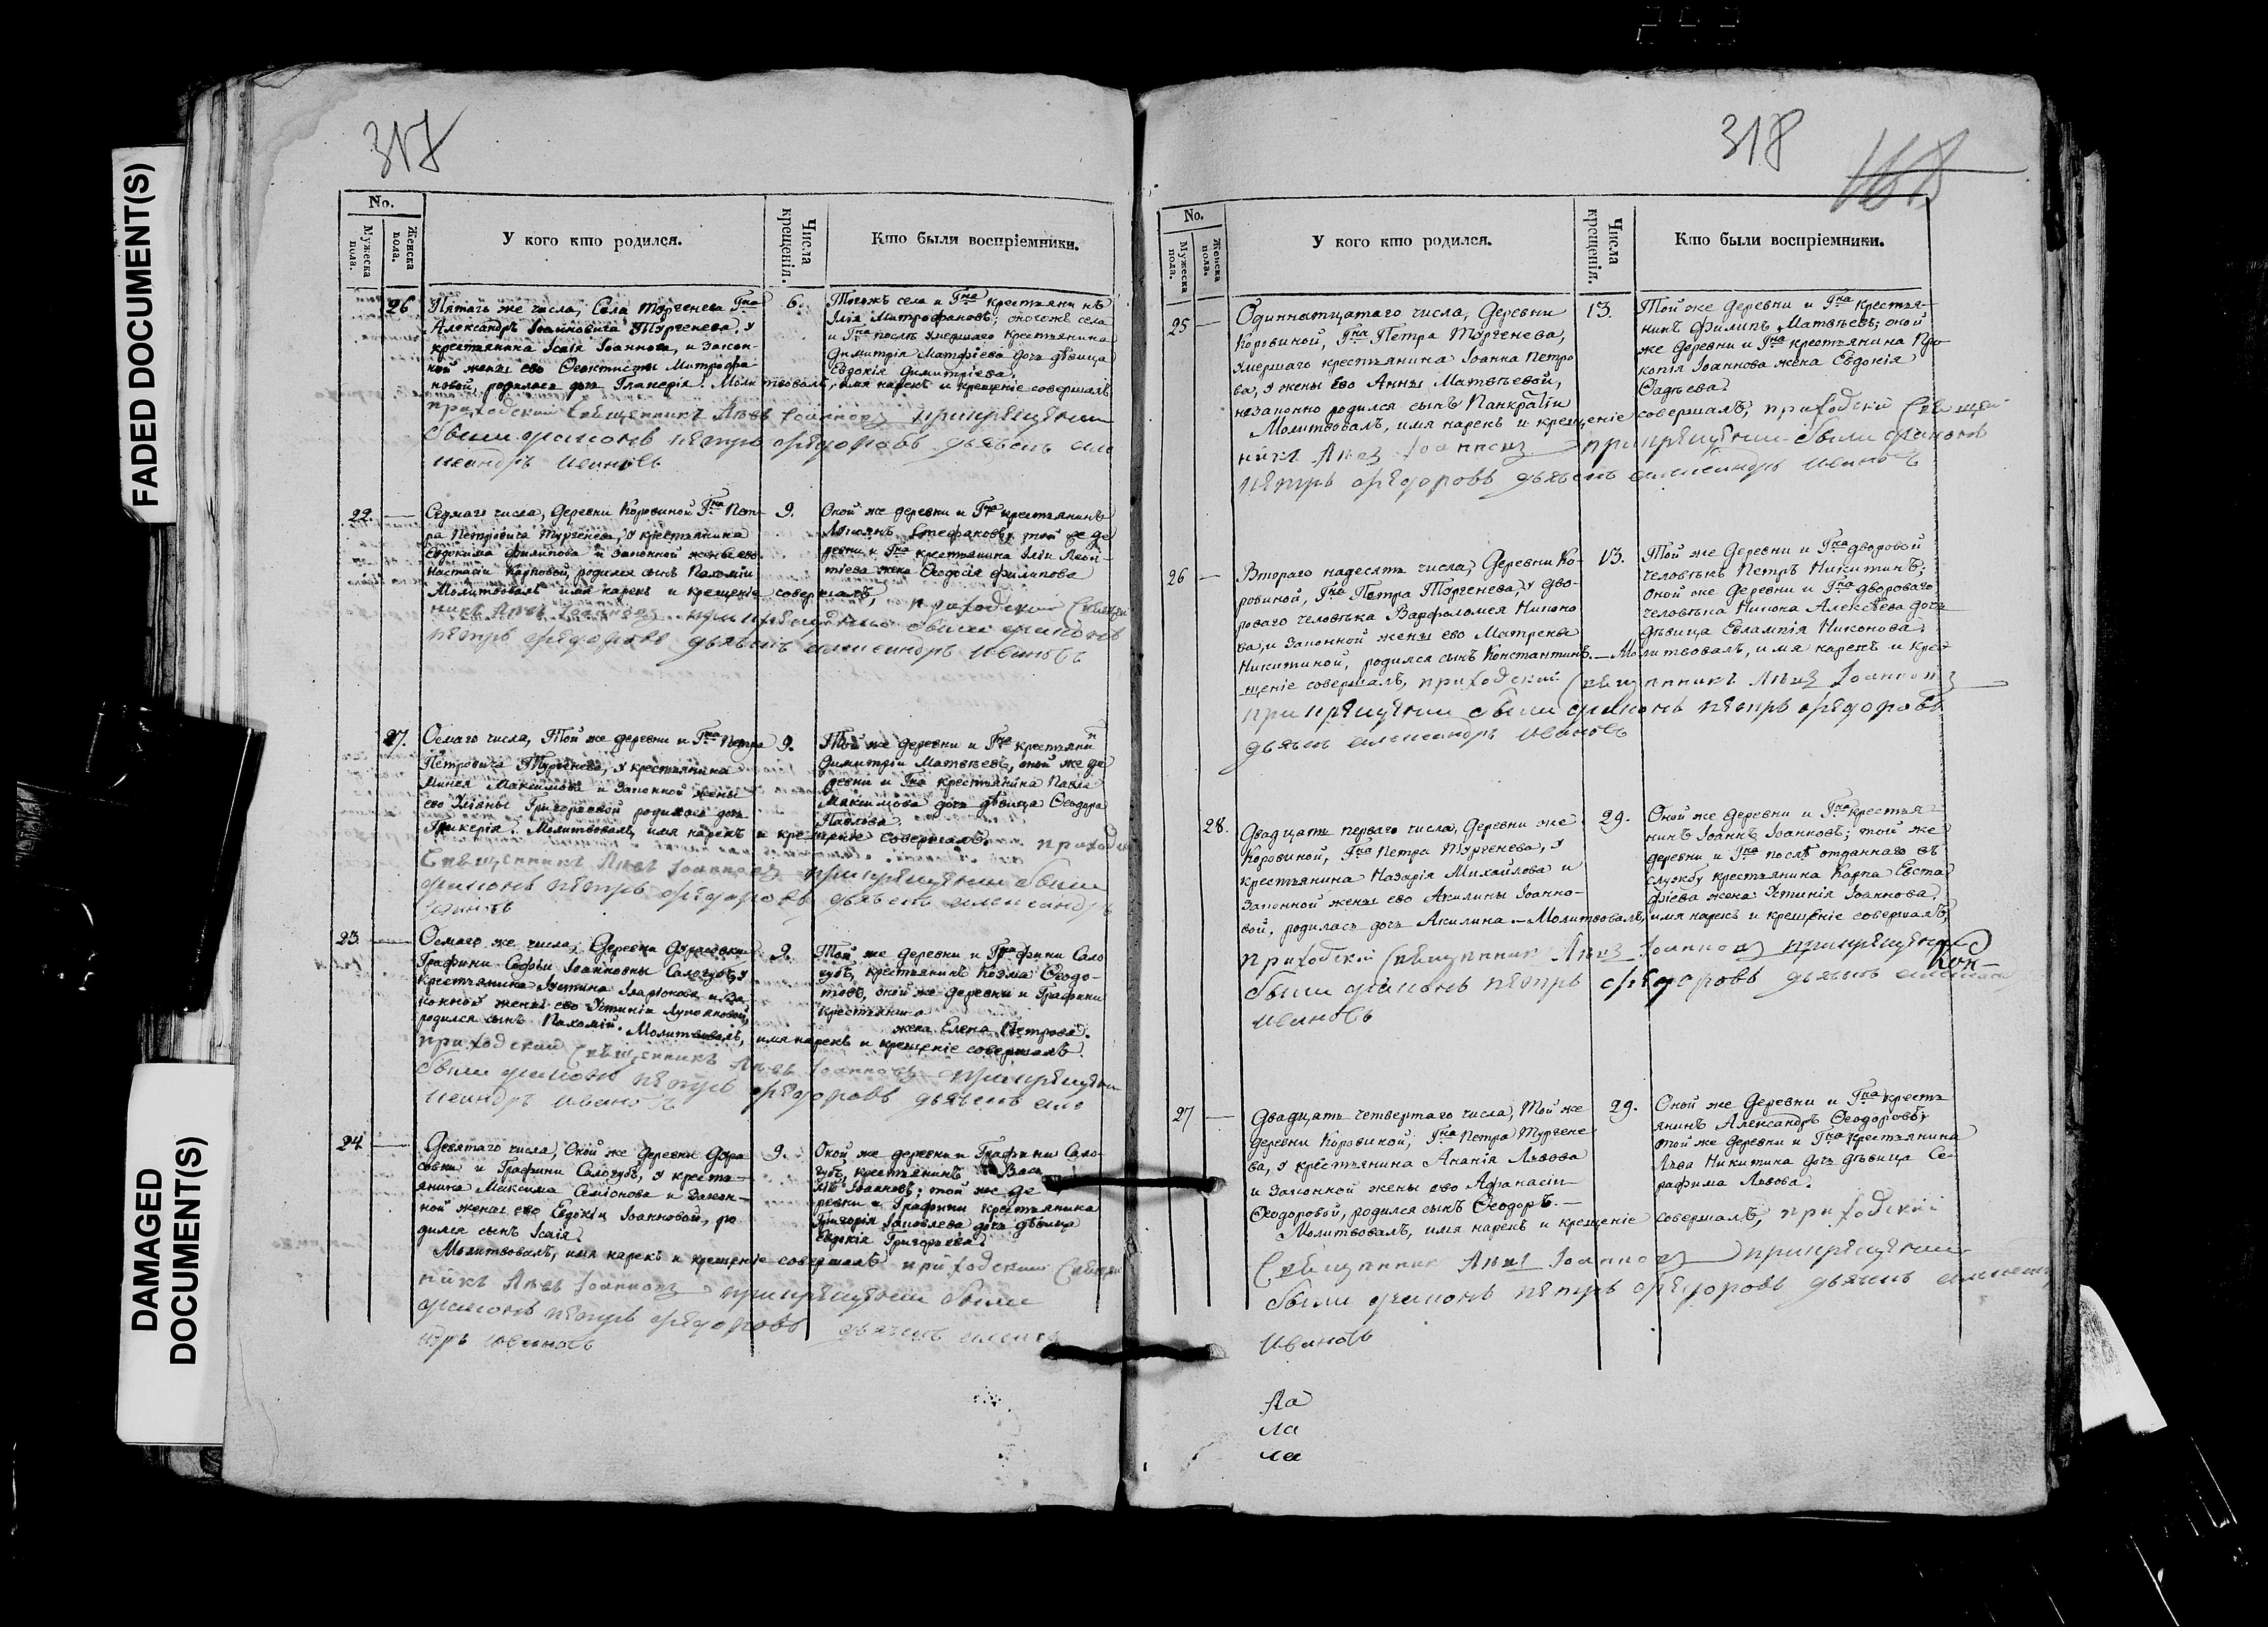 FADED DOCUMENT(S)
DAMAGED
DOCUMENT(S)
317
No.
Мужеска пола.
Женска пола.
У кого кто родился.
Числа крещенія.
Кто были воспріемники.
26
Пятагъ же числа, Села Тургенева Гна
Александръ Іоанновича Тургенева, у
крестьянина Ісаія Іоаннова, и закон-
ной жены ево Феоктисты Митрофа
новой, родилась дочь Гликерія. Молитвовалъ, имя нарекъ и крещеніе совершалъ
приходский Священникъ Левъ Іоанновъ при крещении
были диаконъ петръ федоровъ дьячекъ але
ксандръ Ивановъ
6.
Тогожъ села и Гна крестьянинъ
Илія Митрофановъ; оногоже села
и Гна послѣ умершаго крестьянина
Димитрія Матфіева дочь дѣвица
Евдокія Димитріева.
22.
Седмаго числа, Деревни Коровиной Гна Пет-
ра Петровича Тургенева, у крестьянина
Евдокима Филипова и законной жены ево
Настасіи Карповой, родился сынъ Пахомій
Молитвовалъ имя нарекъ и крещеніе совершалъ, приходский Священ
никъ Левъ Іоанновъ при крещении были диаконъ
петръ федоровъ дьячекъ александръ Ивановъ
9.
Оной же деревни и Гна крестьянинъ
Стефановъ, той же де
ревни и Гна крестьянина Іліи Леон-
тіева жена Феодосія Филипова
27.
Осмаго числа, Той же деревни и Гна Петра
Петровича Тургенева, у крестьянина
Минея Максимова и Законной жены
ево Уліаны Григорьевой родилась дочь
Гликерія. Молитвовалъ, имя нарекъ и крещеніе совершалъ. приход
Священникъ Левъ Іоанновъ при крещении были
диаконъ петръ федоровъ дьячекъ александръ
Ивановъ
9.
Той же деревни и Гна крестьянин
Димитріи Матвѣевъ, оной же де
ревни и Гна крестьянина Павла
Максимова дочь дѣвица Феодора
Павлова.
23.
Осмаго же числа, Деревни Дурасовки
Графини Софьи Іоанновны Салогубъ, у
крестьянина Іустина Іларіонова и за-
конной жены ево Устиніи Лупановой,
родился сынъ Пахомій. Молитвовалъ, имя нарекъ и крещеніе совершалъ.
приходский Священникъ Левъ Іоанновъ при крещении
были диаконъ петръ федоровъ дьячекъ але
ксандръ Ивановъ
9.
Той же деревни и Графини Сало
губъ, крестьянинъ Козма Феодо-
товъ, оной же деревни и Графини
крестьянина
жена Елена Петрова.
24
Девятаго числа, Оной же Деревни Дура
совки и Графини Салогубъ, у кресть-
янина Максима Семіонова и Закон-
ной жены ево Евдокіи Іоанновой, ро
дился сынъ Ісаія.
Молитвовалъ, имя нарекъ и крещеніе совершалъ приходский Священ
никъ Левъ Іоанновъ при крещении были
диаконъ петръ федоровъ дьячекъ алекса
ндръ Ивановъ
9.
Оной же деревни и Графини Сало-
губъ, крестьянинъ Васи
лій Іоанновъ; той же де
ревни и Графини крестьянина
Григорія Іаковлева дочь дѣвица
Евдокія Григорьева.
318
No.
Мужеска пола.
Женска пола.
У кого кто родился.
Числа крещенія.
Кто были воспріемники.
25
Одиннатцатаго числа, Деревни
Коровиной, Гна Петра Тургенева,
умершаго крестьянина Іоанна Петро
ва, у жены Ево Анны Матвѣевой,
незаконно родился сынъ Панкратіи
Молитвовалъ, имя нарекъ и крещеніе совершалъ, приходски Священ
никъ Левъ Іоанновъ при крещении были диаконъ
петръ федоровъ дьячекъ александръ Ивановъ
13.
Той же Деревни и Гна крестья-
нинъ Филипъ Матвѣевъ; оной
же деревни и Гна крестьянина Про
копія Іоаннова жена Евдокія
Фадѣева.
26
Втораго надесять числа, Деревни Ко-
ровиной, Гна Петра Тургенева, у дво-
роваго человѣка Варфоломея Никоно
ва, и Законной жены ево Матрены
Никитиной, родился сынъ Константинъ. — Молитвовалъ, имя нарекъ и кре-
щеніе совершалъ, приходский Священникъ Левъ Іоанновъ
при крещении были диаконъ петръ федоровъ
дьячекъ александръ Ивановъ
13.
Той же Деревни и Гна дворовой
человѣкъ Петръ Никитинъ;
оной же Деревни и Гна двороваго
человѣка Никона Алексѣева дочь
дѣвица Евлампія Никонова.
28.
Двадцать перваго числа, Деревни же
Коровиной, Гна Петра Тургенева, у
крестьянина Назарія Михайлова и
Законной жены ево Акилины Іоанно-
вой, родилась дочь Акилина. — Молитвовалъ, имя нарекъ и крещеніе совершалъ,
приходский Священникъ Левъ Іоанновъ при крещении
были диаконъ петръ федоровъ дьячекъ александ
Ивановъ
29.
Оной же деревни и Гна крестья-
нинъ Іоаннъ Іоанновъ; той же
деревни и Гна послѣ отданнаго въ
службу крестьянина Карпа Евста
фіева жена Устинія Іоаннова.
Кон-
27
Двадцать четвертаго числа, Той же
деревни Коровиной, Гна Петра Тургене
ва, у крестьянина Ананія Львова
и Законной жены ево Афанасіи
Феодоровой, родился сынъ Феодоръ. —
Молитвовалъ, имя нарекъ и крещеніе совершалъ, приходский
Священник Левъ Іоанновъ при крещении
были диаконъ петръ федоровъ дьячекъ алексан
Ивановъ
29.
Оной же Деревни и Гна кресть
янинъ Александръ Феодоровъ;
той же деревни и Гна крестьянина
Льва Никитина дочь дѣвица Се-
рафима Львова.
ла
ла
ла